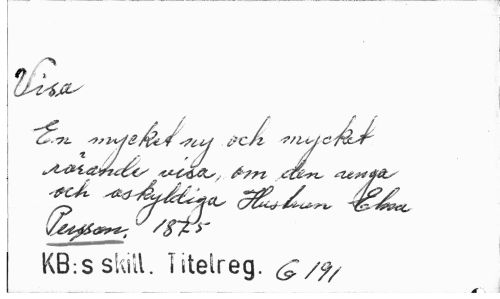 Visa
En mycket ny och mycket
rörande visa, om den unga
och oskyldiga Hustrun Elsa
Persson. 1875
KB:s skill. Titelreg. G 191